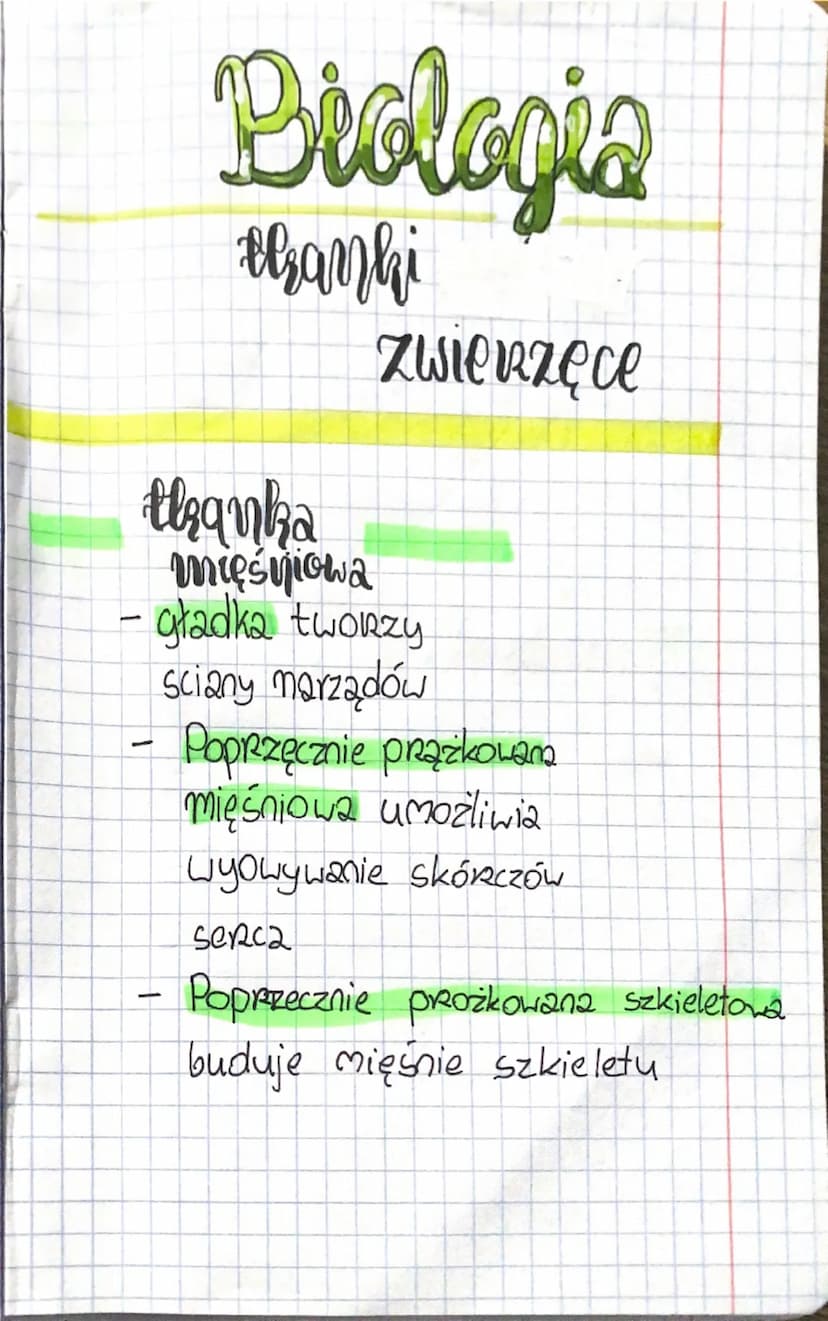 Biologia
tkanki
zwierzęce
tkanka
mięśniowa
- gładka tworzy
sciany narządów
- Poprzęcznie prążkowana
mięśniowa umożliwia
wyowywanie skórczów
serca
- Poprzecznie prożkowana szkieletowa
buduje mięśnie szkieletu